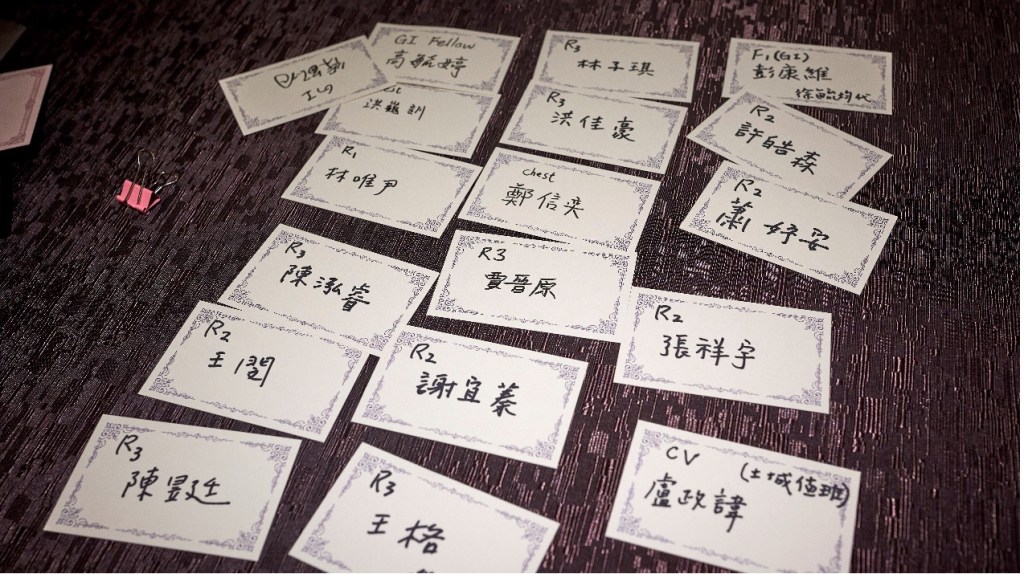 GI Fellow
高毓婷
R3
林子琪
F1(GI)
彭康維
徐毓均代
洪巍訓
R3
洪佳豪
R2
許皓森
R1
林唯尹
chest
鄭信奕
R2
蕭妤妟
R3
陳泓睿
R3
賈晉原
R2
張祥宇
R2
王閏
R2
謝宜蓁
R3
陳昱廷
R3
王格
CV
(土城值班)
盧政諱